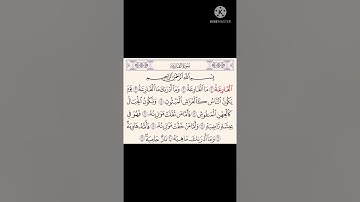 KINEMASTER
سُورَةُ القَارِعَةِ
بِسْمِ اللَّهِ الرَّحْمَٰنِ الرَّحِيمِ
الْقَارِعَةُ ۝١ مَا الْقَارِعَةُ ۝٢ وَمَا أَدْرَاكَ مَا الْقَارِعَةُ ۝٣ يَوْمَ
يَكُونُ النَّاسُ كَالْفَرَاشِ الْمَبْثُوثِ ۝٤ وَتَكُونُ الْجِبَالُ
كَالْعِهْنِ الْمَنْفُوشِ ۝٥ فَأَمَّا مَنْ ثَقُلَتْ مَوَازِينُهُ ۝٦ فَهُوَ فِي
عِيشَةٍ رَاضِيَةٍ ۝٧ وَأَمَّا مَنْ خَفَّتْ مَوَازِينُهُ ۝٨ فَأُمُّهُ هَاوِيَةٌ
۝٩ وَمَا أَدْرَاكَ مَا هِيَهْ ۝١٠ نَارٌ حَامِيَةٌ ۝١١